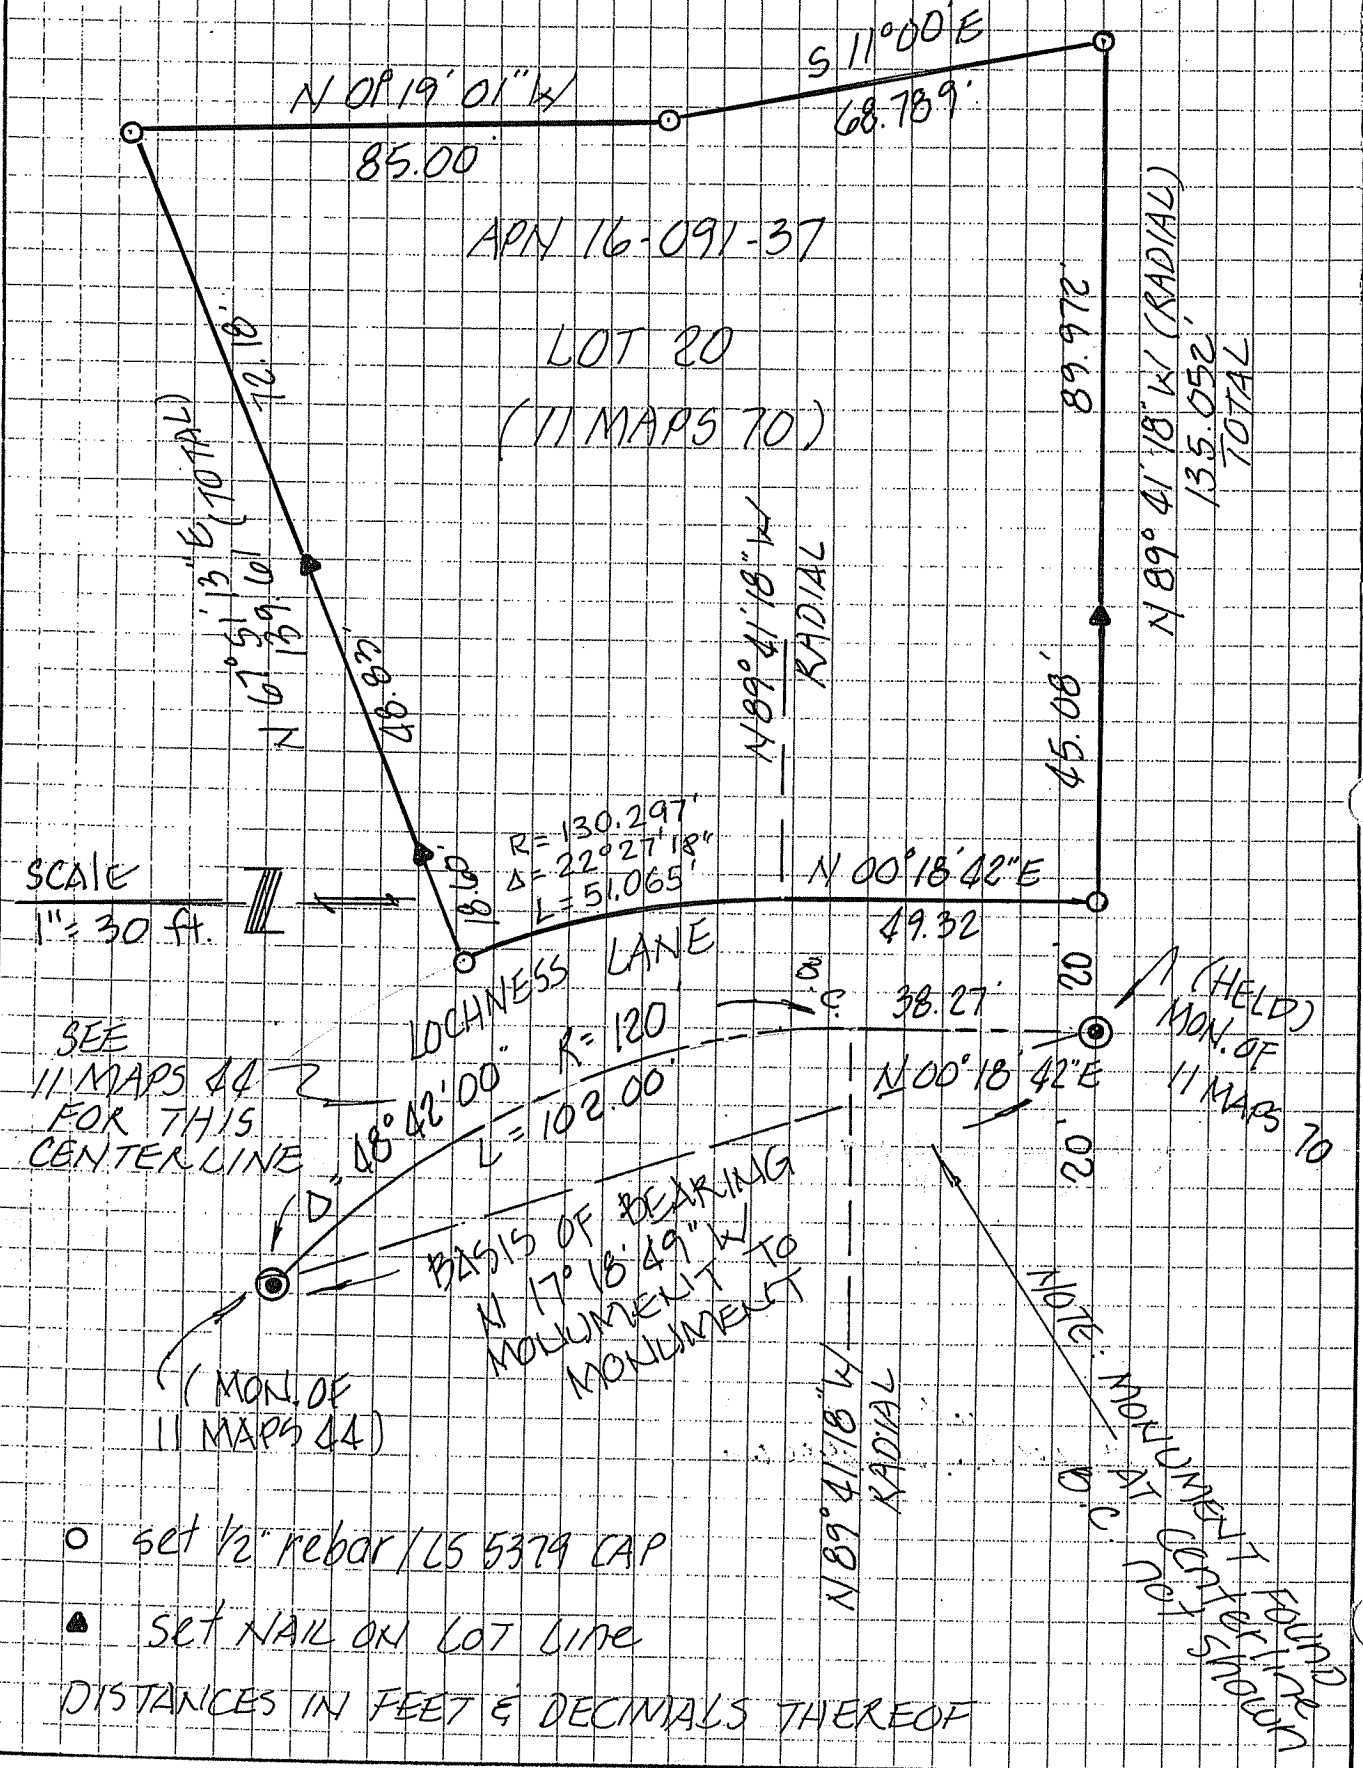 S 11°00'E
68.789'
N 0°19'01"W
85.00'
APN 16-091-37
LOT 20
(11 MAPS 70)
72.18'
N 67°51'13"E
139.61 (TOTAL)
48.83'
18.60'
89.972'
N 89°41'18"W (RADIAL)
135.052'
TOTAL
45.08'
N 89°41'18"W
RADIAL
R=130.297'
Δ=22°27'18"
L=51.065'
N 00°18'42"E
49.32
SCALE
1"=30 ft.
LOCHNESS LANE
20'
(HELD)
MON. OF
11 MAPS 70
38.27'
N 00°18'42"E
20'
R=120'
L=102.00'
D= 48°42'00"
SEE
11 MAPS 44
FOR THIS
CENTERLINE
BASIS OF BEARING
N 17°18'49"W
MONUMENT TO
MONUMENT
(MON. OF
11 MAPS 44)
N 89°41'18"W
RADIAL
NOTE: MONUMENT FOUND
AT centerline
not shown
set 1/2" rebar/LS 5379 CAP
set NAIL ON LOT LINE
DISTANCES IN FEET & DECIMALS THEREOF